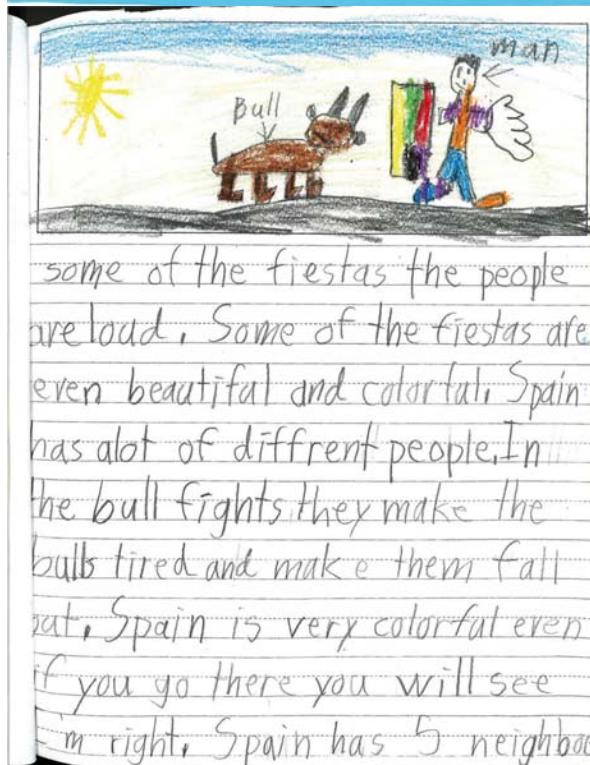 man
Bull
some of the fiestas the people
are loud. Some of the fiestas are
even beautiful and colorful. Spain
has alot of diffrent people. In
the bull fights they make the
bulls tired and make them fall
out. Spain is very colorful even
if you go there you will see
I'm right. Spain has 5